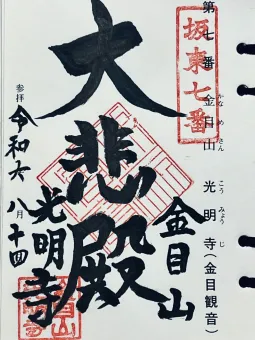 第七番 金目山 光明寺(金目観音)
かなめさん こうみょうじ
坂東七番
金目山
大悲殿
光明寺
参拝
令和六
八月十四